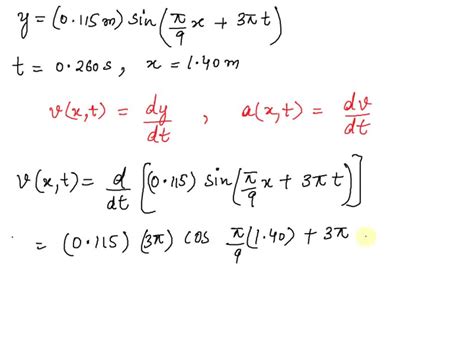 y = (0.115m) sin(π/9 x + 3π t)
t = 0.260s, x = 1.40m
v(x,t) = dy/dt , a(x,t) = dv/dt
v(x,t) = d/dt [(0.115) sin(π/9 x + 3π t)]
= (0.115) (3π) cos π/9 (1.40) + 3π